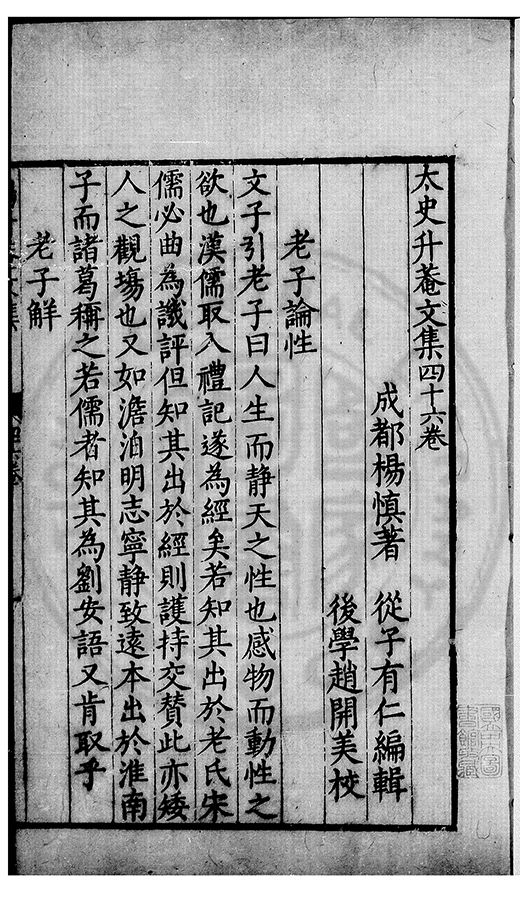 太史升菴文集四十六卷
成都楊慎著　從子有仁編輯
後學趙開美校
老子論性
文子引老子曰人生而靜天之性也感物而動性之
欲也漢儒取入禮記遂為經矣若知其出於老氏宋
儒必曲為譏評但知其出於經則護持交贊此亦矮
人之觀塲也又如澹泊明志寧静致遠本出於淮南
子而諸葛稱之若儒者知其為劉安語又肯取乎
老子解